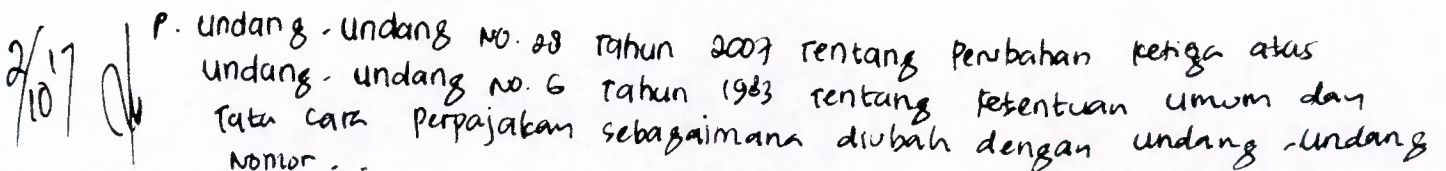 2/10'17
P. undang-undang NO. 28 Tahun 2007 Tentang Perubahan Ketiga atas
undang-undang NO. 6 Tahun 1983 Tentang Ketentuan umum dan
Tata cara Perpajakan sebagaimana diubah dengan undang-undang
Nomor...